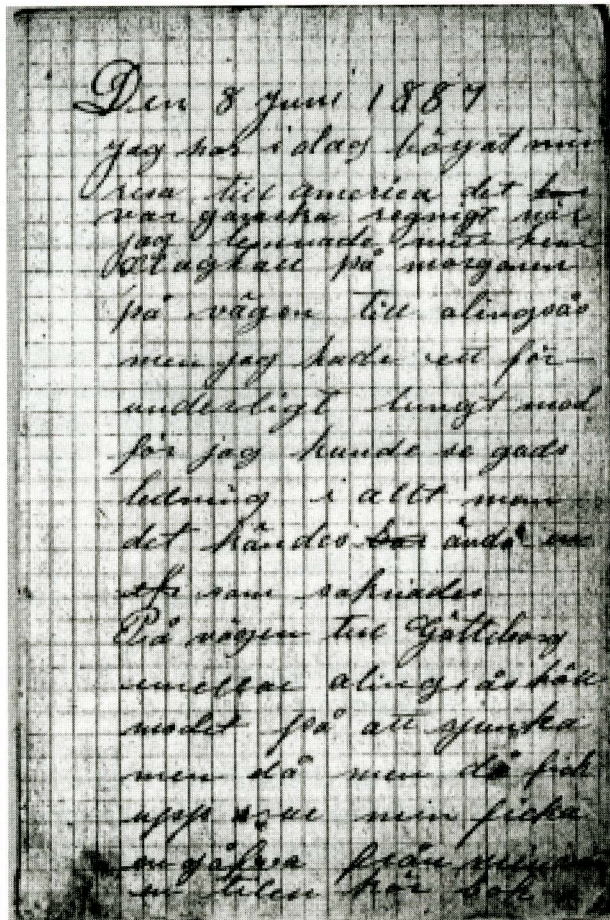 Den 8 Juni 1887
jag har i dag börjat min
resa till America det
var ganska regnigt när
jag lemnade mitt hem
på morgonen
på vägen till alingsås
men jag hade ett för
underligt lungt mod
för jag kunde se guds
ledning i allt men
det kändes ändå
som saknades
På vägen till Götteborg
alingsås höll
modet på att sjunka
men då men då fick
upp min ficka
en gåfva från
en liten bok